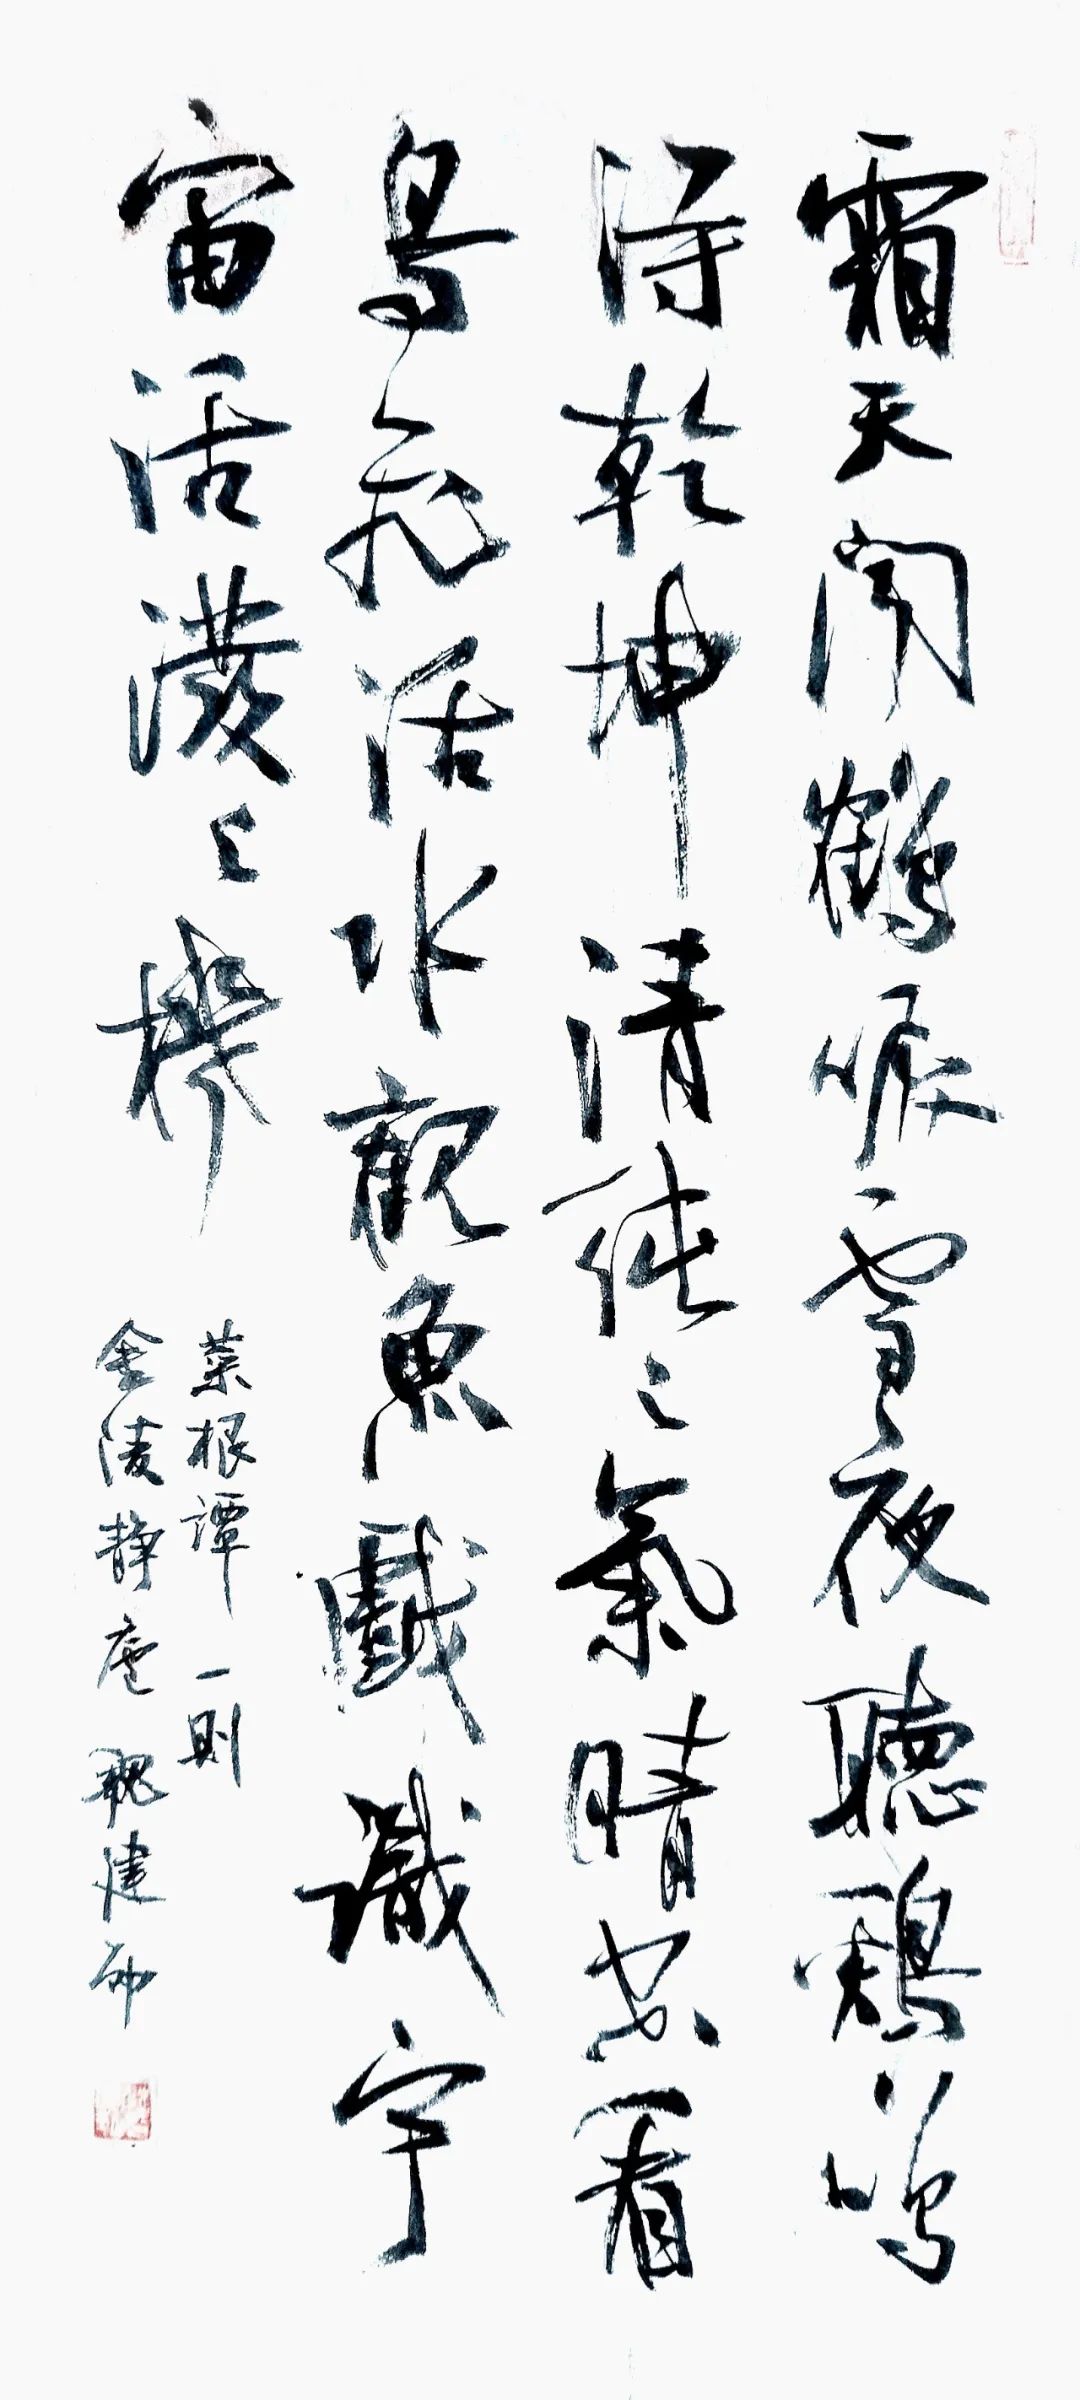 霜天聞鶴唳雪夜聽鷄鳴
得乾坤清純之氣晴空看
鳥飛活水觀魚戲識宇
宙活潑之機
菜根譚一則
金陵静庵魏建